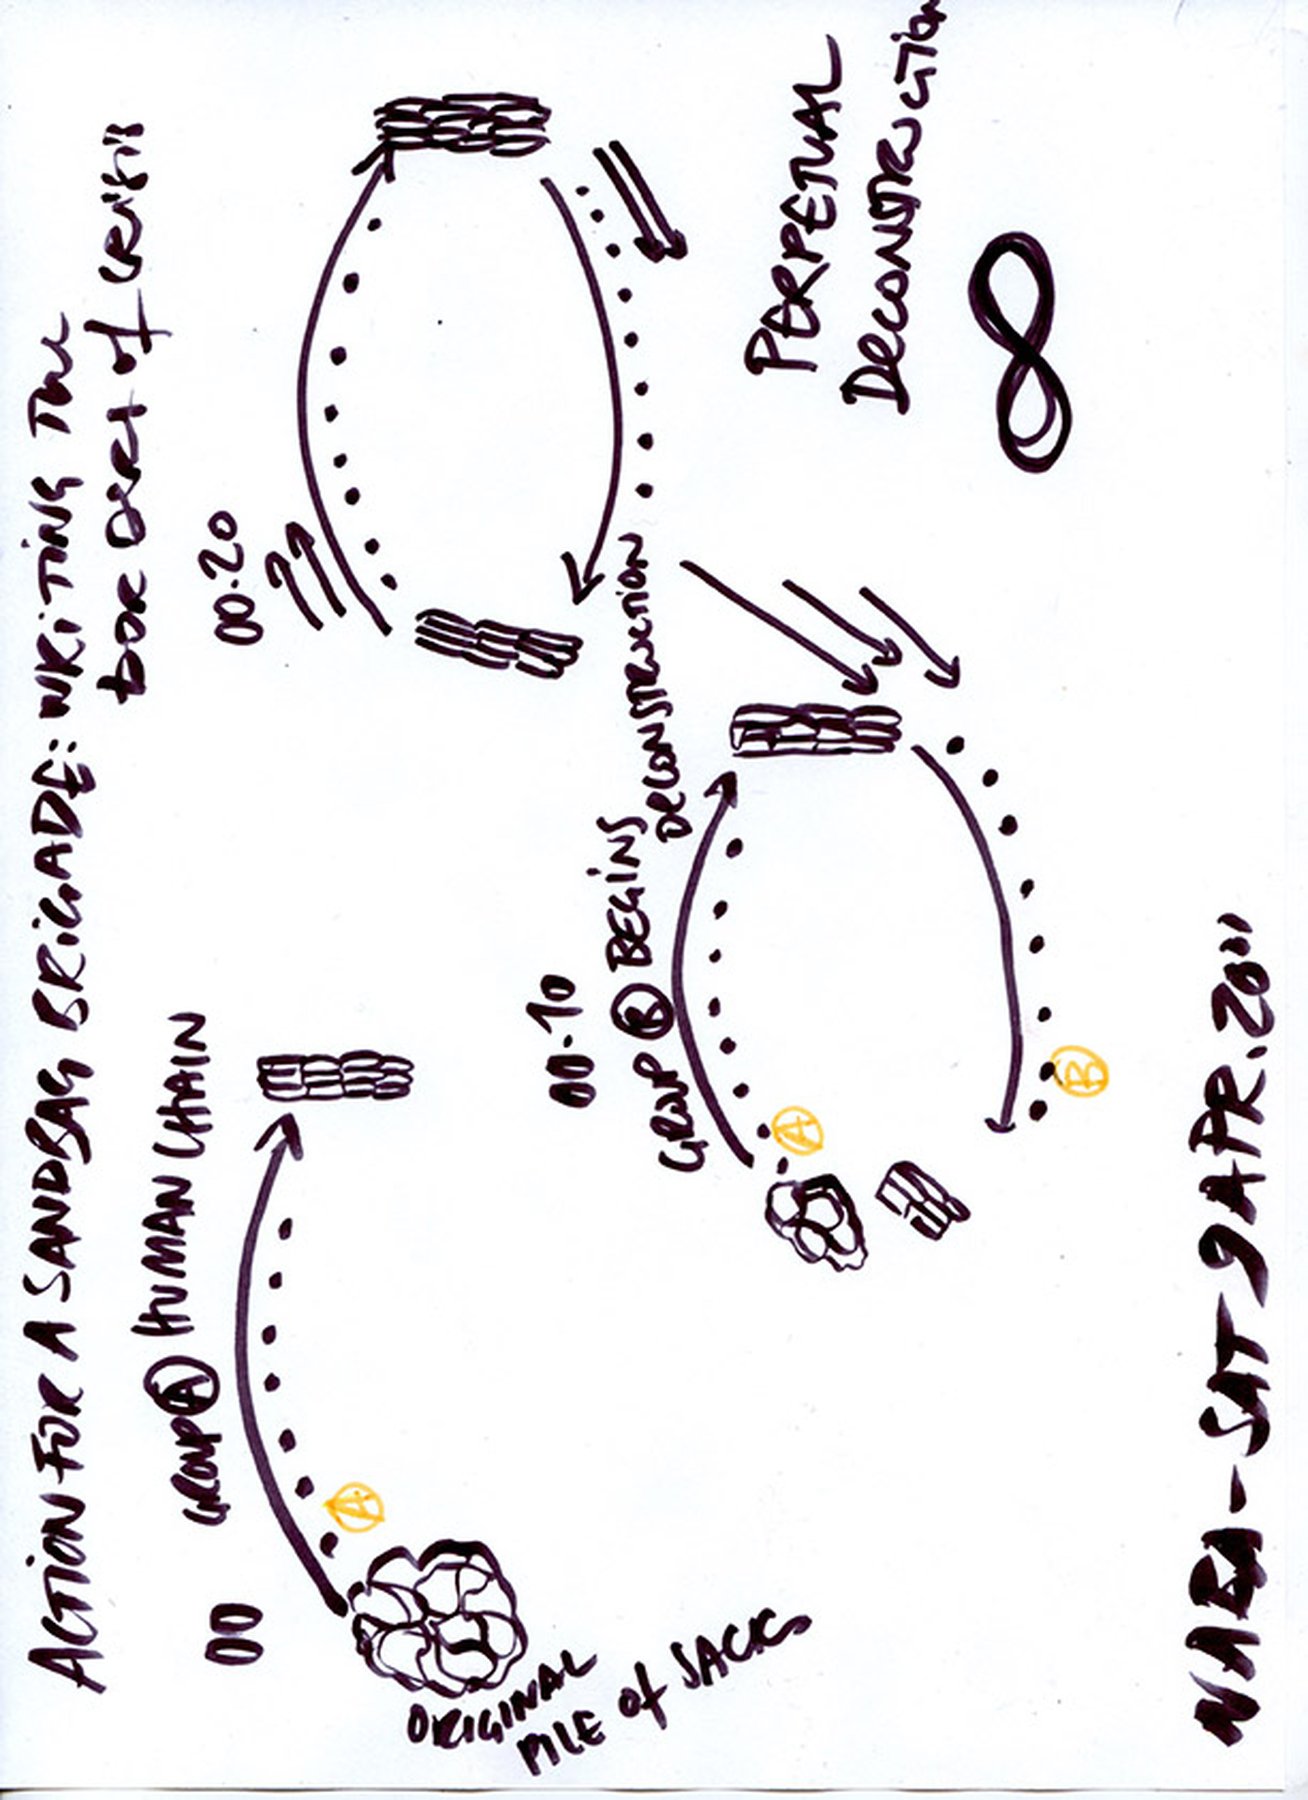 ACTION FOR A SANDBAG BRIGADE: WRITING THE
DARK ART of CRISIS
00
GROUP A HUMAN CHAIN
A
ORIGINAL
PILE of SACKS
00.10
GROUP B BEGINS
DECONSTRUCTION
A
B
00.20
PERPETUAL
DECONSTRUCTION
NABA - SAT 9 APR. 2011